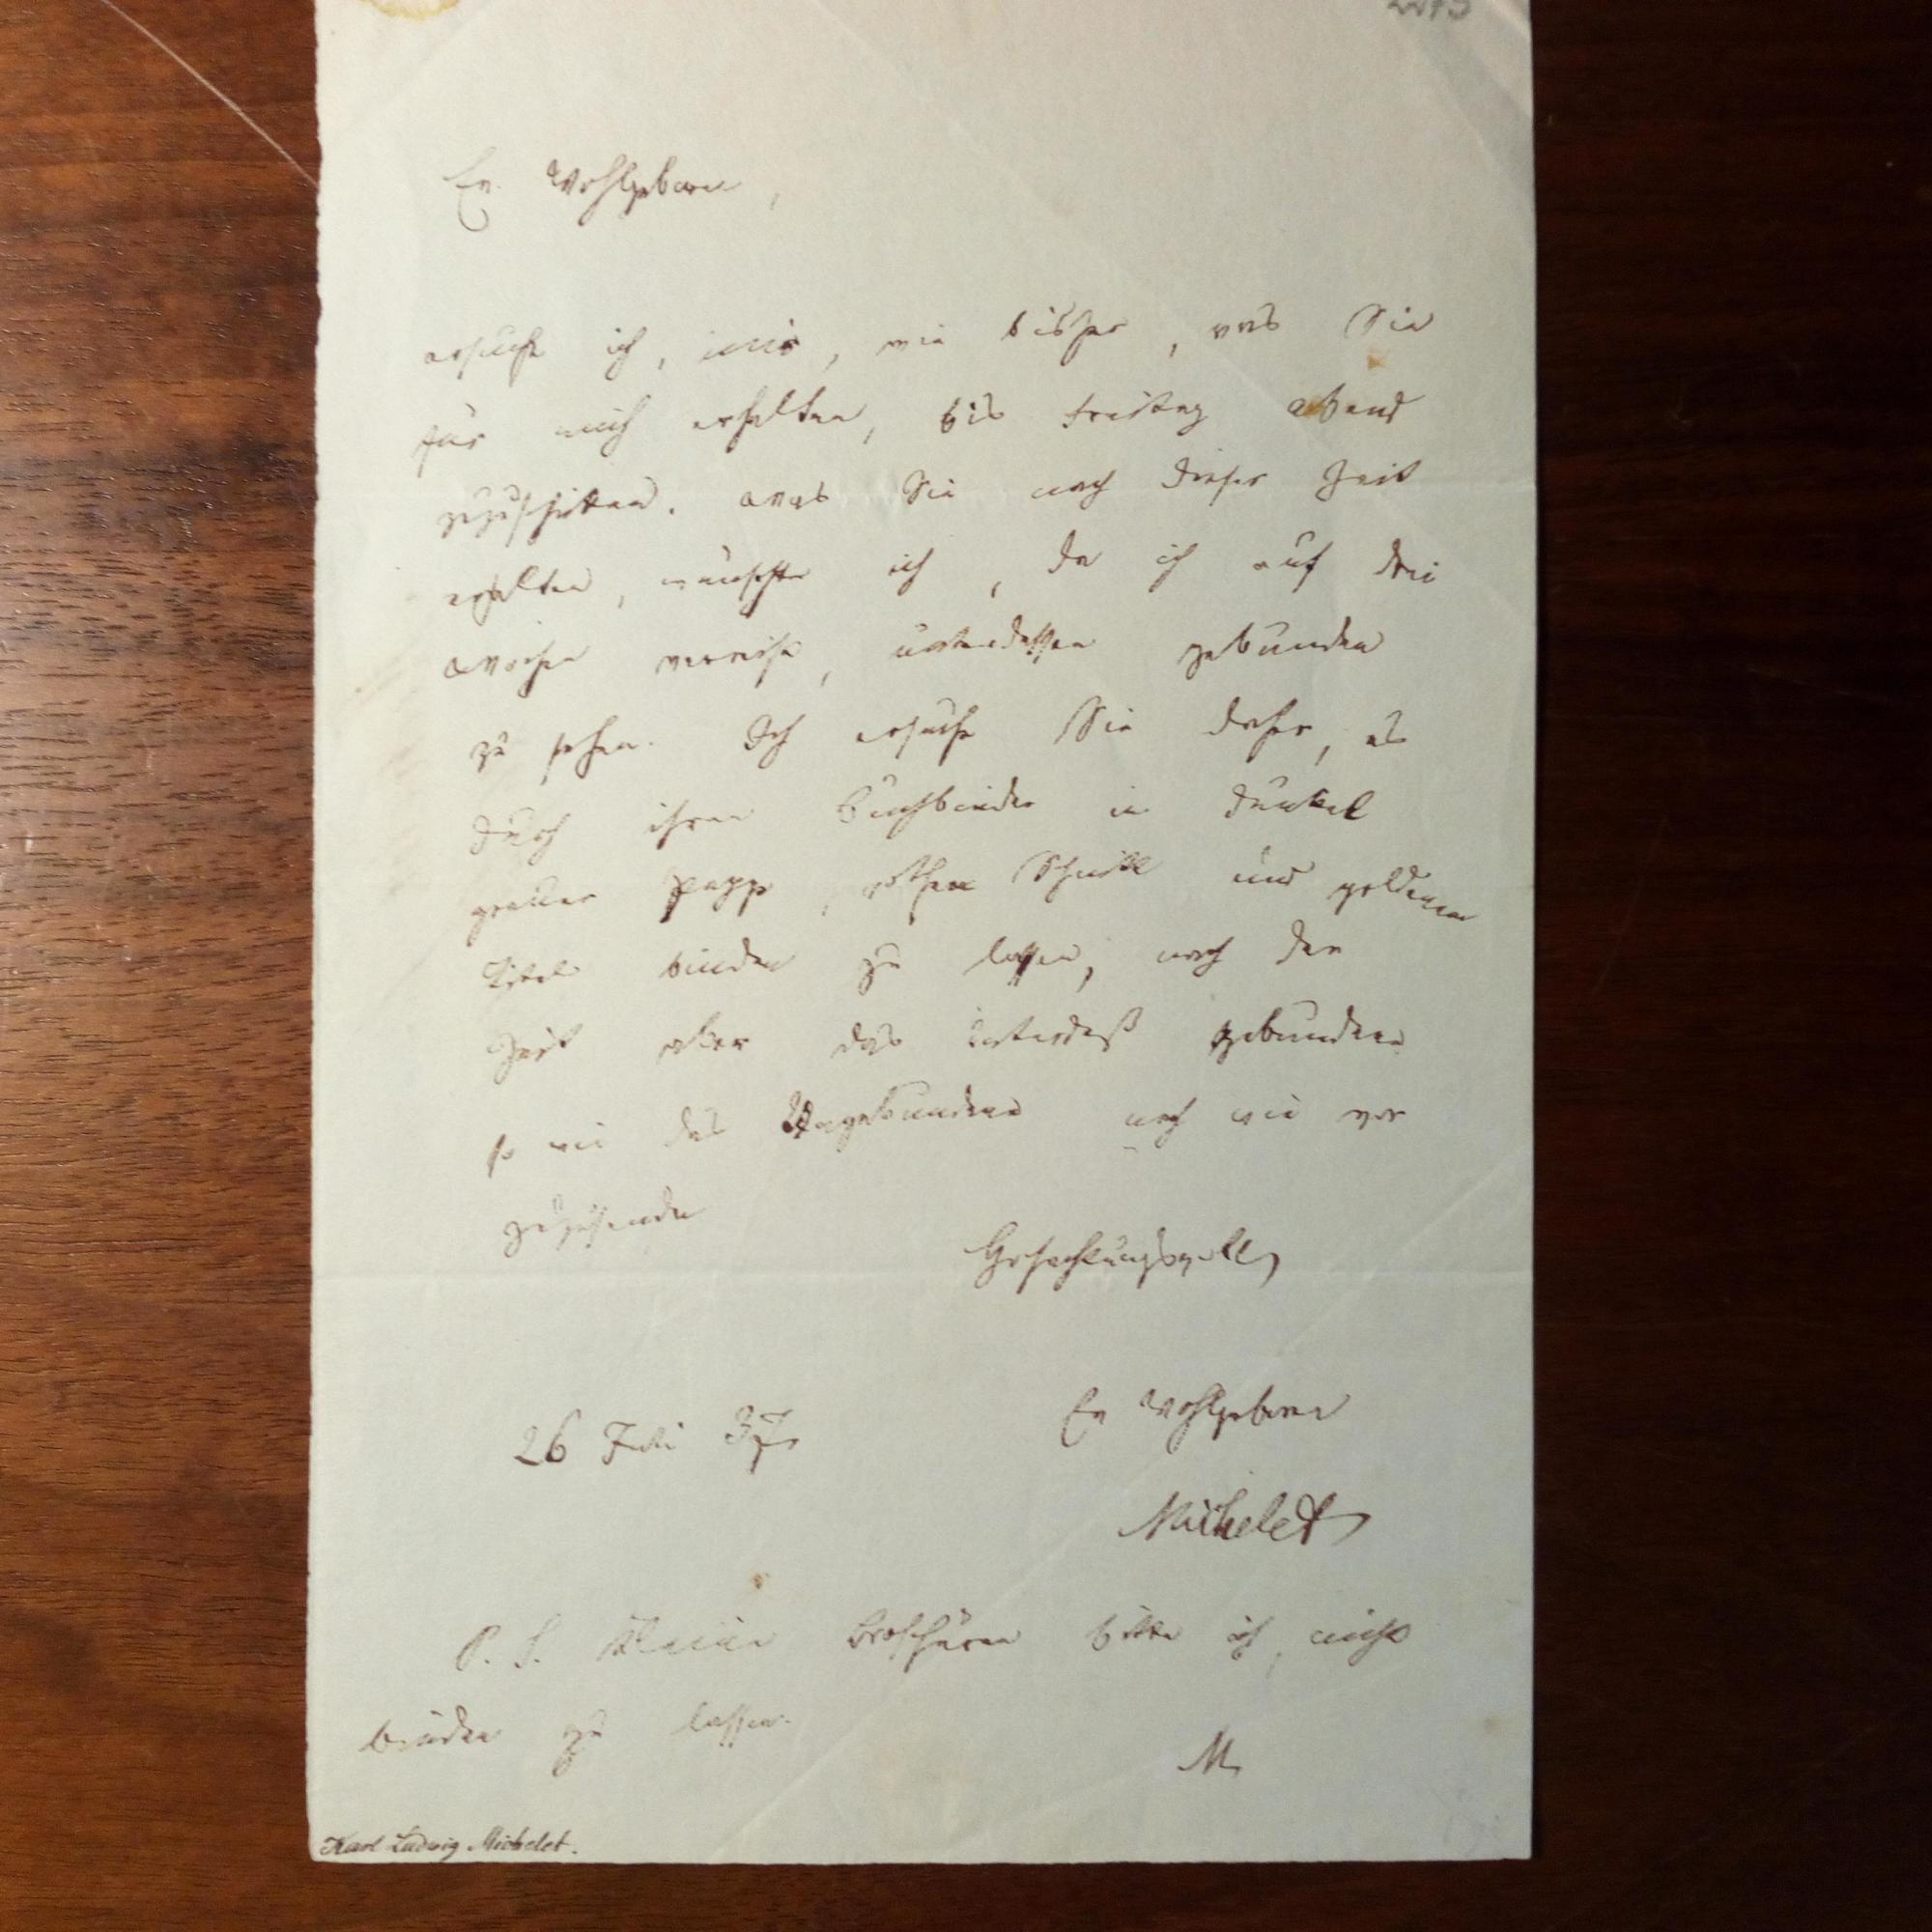 Ew. Wohlgeboren,
ersuche ich, mir, wie bisher, was Sie
für mich erhalten, bis Freitag Abend
zuzuschicken. Was Sie nach dieser Zeit
erhalten, wünschte ich, da ich auf drei
Wochen verreise, unterdessen gebunden
zu sehen. Ich ersuche Sie daher, es
durch ihren Buchbinder in dunkel
Papp, rothem Schnitt und goldenem
Titel binden zu lassen, nach der
Zeit aber das unterdeß gebundene
so wie das Ungebundene nach wie vor
zuzusenden
Hochachtungsvoll
Ew Wohlgeboren
26 Juli 37
Michelet
P. S. Kleine Broschüren bitte ich, nicht
binden zu lassen.
M
Karl Ludwig Michelet.